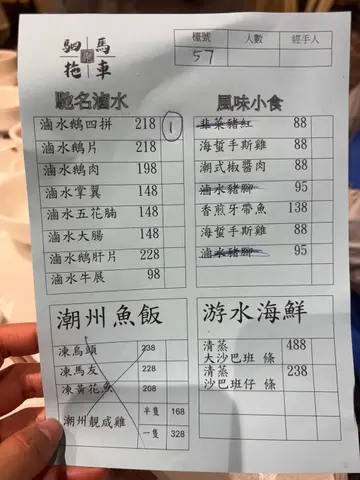 駟馬
拖車
檯號 人數 經手人
57
馳名滷水
滷水鵝四拼 218 1
滷水鵝片 218
滷水鵝肉 198
滷水掌翼 148
滷水五花腩 148
滷水大腸 148
滷水鵝肝片 228
滷水牛展 98
風味小食
韭菜豬紅 88
海蜇手撕雞 88
潮式椒醬肉 88
滷水豬腳 95
香煎牙帶魚 138
海蜇手撕雞 88
滷水豬腳 95
潮州魚飯
凍烏頭 238
凍馬友 228
凍黃花魚 208
潮州靚咸雞 半隻 168
一隻 328
游水海鮮
清蒸 488
大沙巴班 條
清蒸 238
沙巴班仔 條